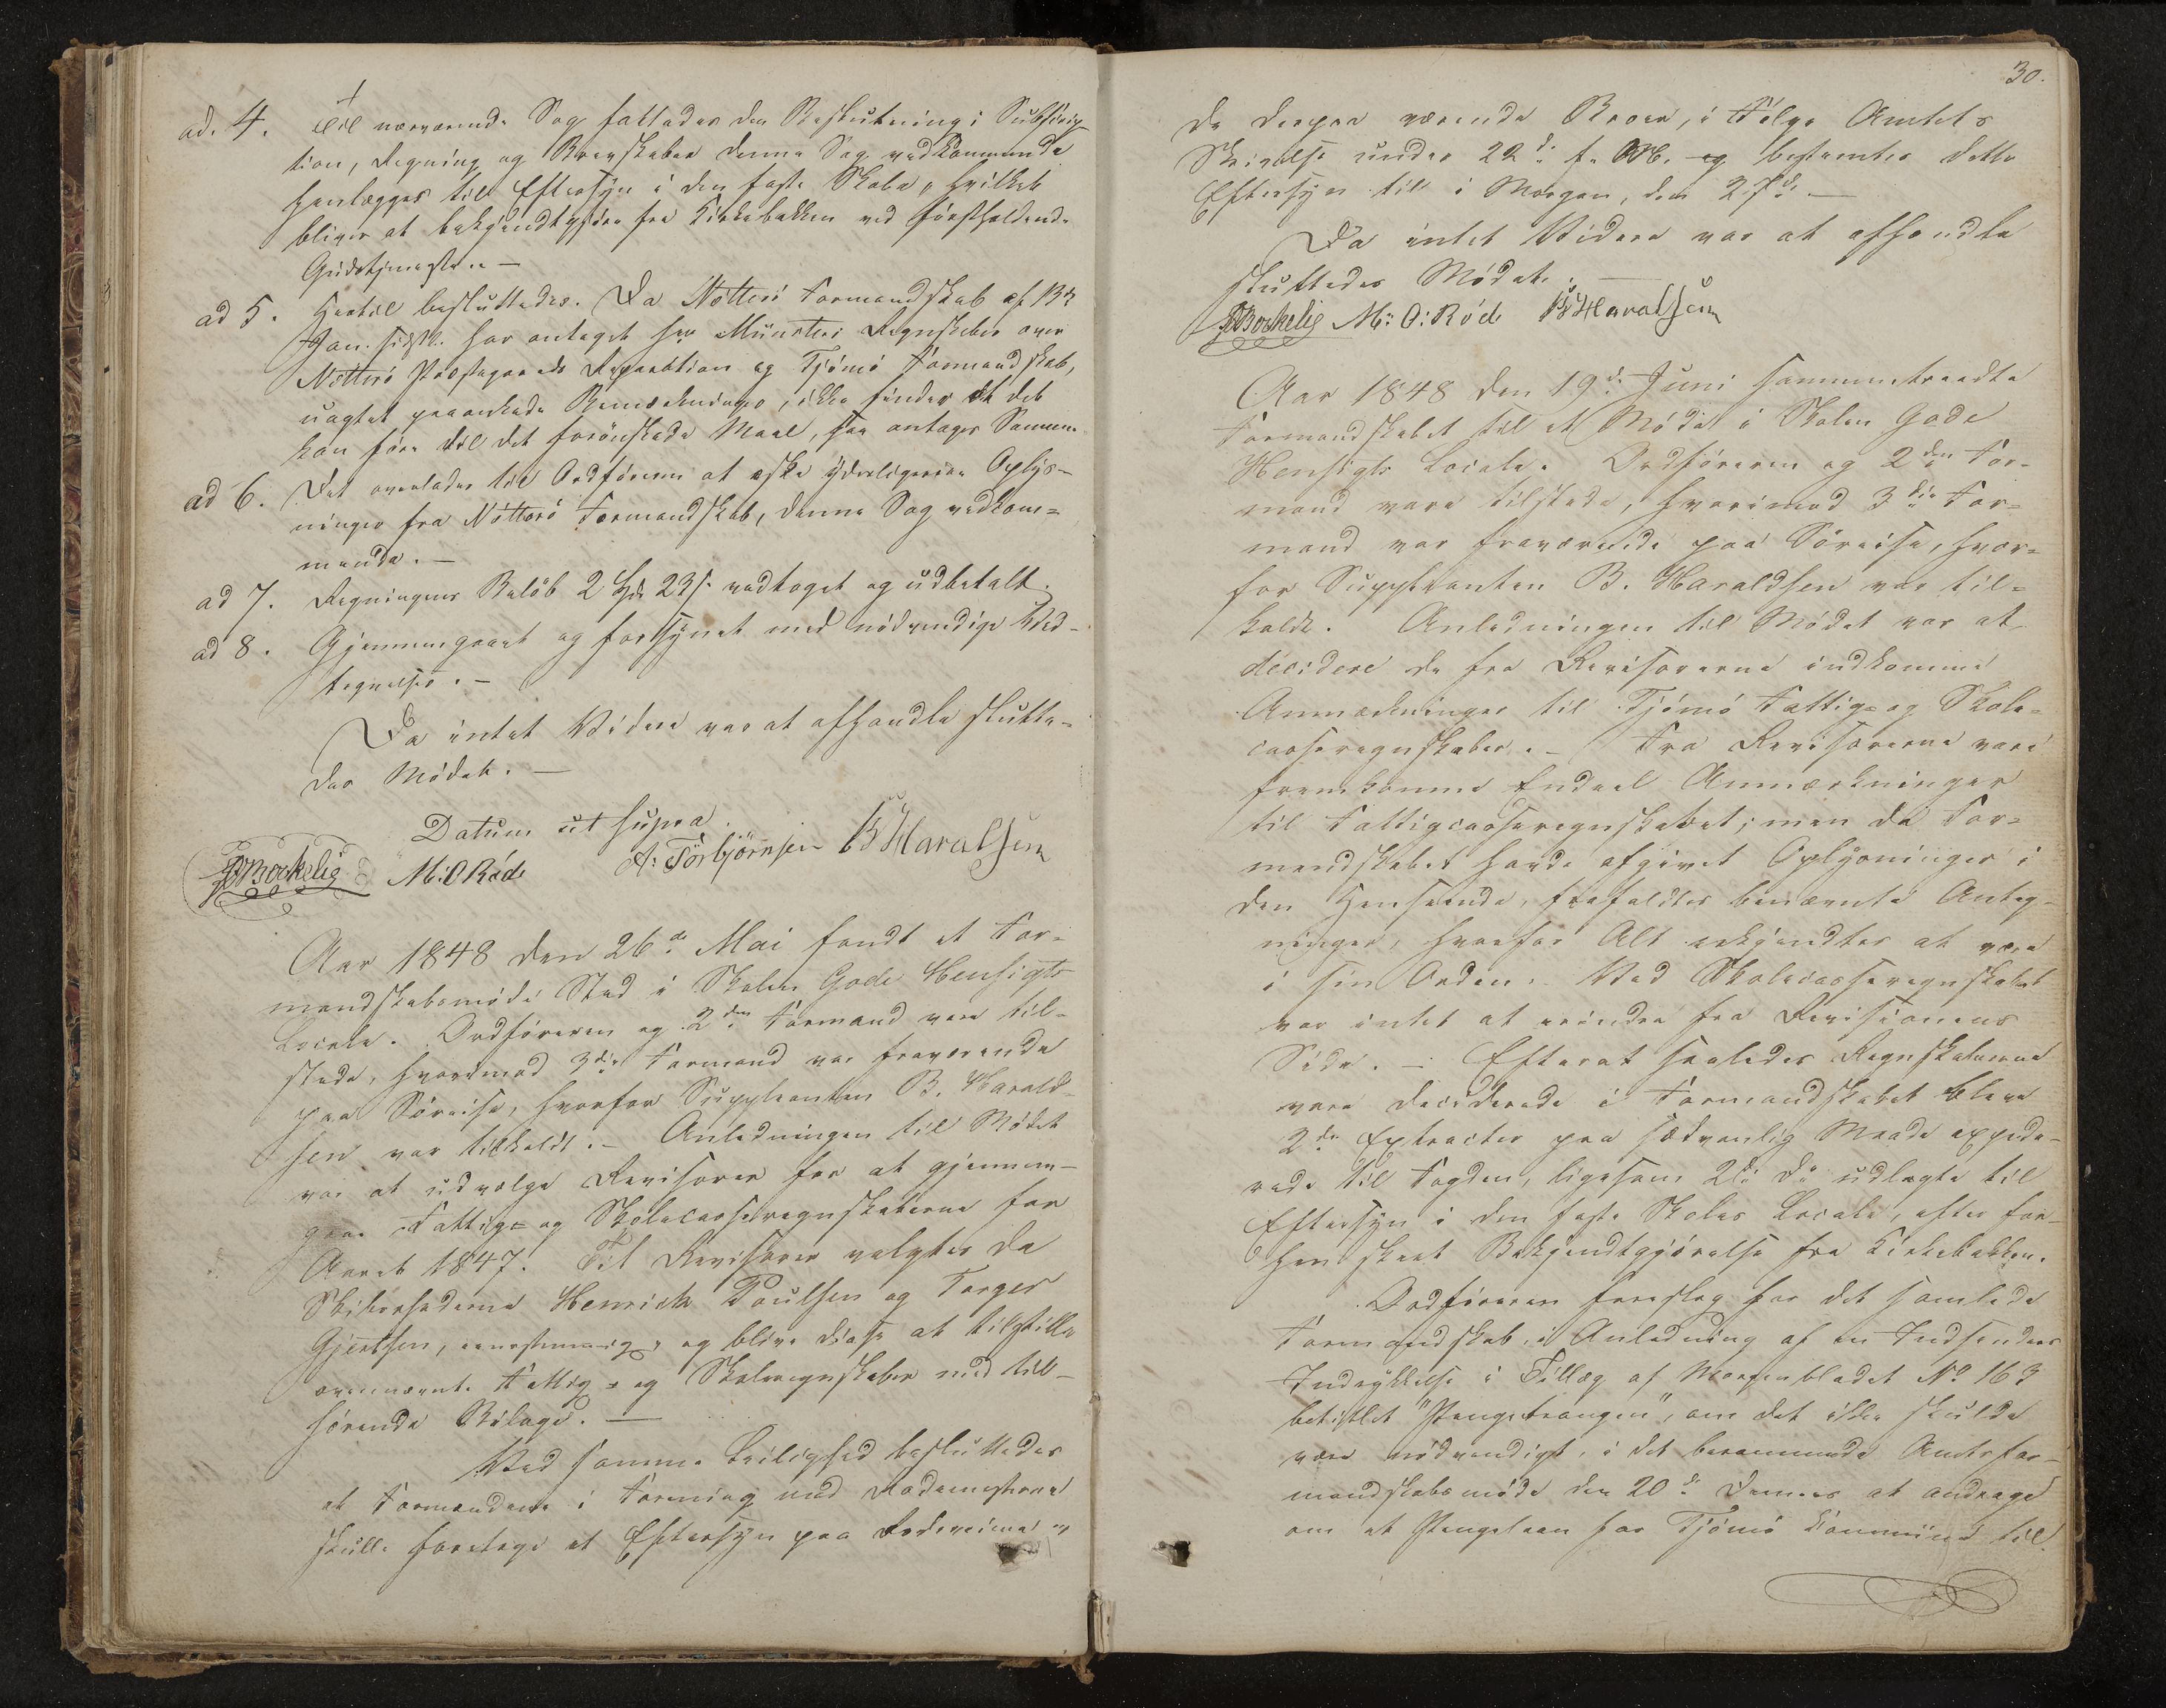 ad. 4. Til nærværende Sag fattedes den Beslutning: Subskrip-
tion, Regning og Brevskaber denne Sag vedkommende
henlægges til Eftersyn i den faste Skole, hvilket
bliver at bekjendtgjøre fra Kirkebakken ved førstholdende
Gudstjeneste. —
ad 5. Hertil besluttedes. Da Nötterö Formandskab af 13de
Jan. sidstl. har antaget Hr Münsters Regnskaber over
Nötterö Præstegaards Reparation og Tjömö Formandskab,
uagtet paaankede Bemærkninger, ikke finder at det
kan føre til det forønskede Maal, saa antages Samme.
ad 6. Det overlades til Ordføreren at æske yderligere Oplys-
ninger fra Nötterö Formandskab, denne Sag vedkom-
mende. —
ad 7. Regningens Beløb 2 Spd 23 s. vedtaget og udbetalt.
ad 8. Gjennemgaaet og forsynet med nödvendige Ved-
tegnelser. —
Da intet Videre var at afhandle slutte-
des Mödet. —
Datum ut supra.
Bockelie M: O Röde A: Torbjörnsen B Haralsen
Aar 1848 den 26de Mai fandt et For-
mandskabsmöde Sted i Skolen Gode Hensigts
Locale. Ordföreren og 2den Formand vare til-
stede, hvorimod 3die Formand var fraværende
paa Söreise, hvorfor Suppleanten B. Harald-
sen var tilkaldt. — Anledningen til Mödet
var at udvælge Revisorer for at gjennem-
gaae Fattig- og Skolecasseregnskaberne for
Aaret 1847. Til Revisorer valgtes da
Skibsrhederne Henrich Poulsen og Torger
Gjertsen, eenstemmig, og blive disse at tilstille
ovennævnte Fattig- og Skoleregnskaber med til-
hörende Bilage. —
Ved samme Leilighed besluttedes
at Formændene i Forening med Rodemesterne
skulle foretage et Eftersyn paa Rodeveiene og
30.
de derpaa værende Broer, i Fölge Amtets
Skrivelse under 22de f. M. og bestemtes dette
Eftersyn til i Morgen, den 27de. —
Da intet Videre var at afhandle
sluttedes Mödet. —
Bockelie M: O: Röde B Haralsen
Aar 1848 den 19de Juni sammentraadte
Formandskabet til et Möde i Skolen Gode
Hensigts Locale. Ordföreren og 2den For-
mand vare tilstede, hvorimod 3die For-
mand var fraværende paa Söreise, hvor-
for Suppleanten B. Haraldsen var til-
kaldt. Anledningen til Mödet var at
decidere de fra Revisorerne indkomme
Anmærkninger til Tjömö Fattig- og Skole-
casseregnskaber. — Fra Revisorerne vare
fremkomne Endeel Anmærkninger
til Fattigcasseregnskabet; men da For-
mandskabet havde afgivet Oplysninger i
den Henseende, frafaldtes benævnte Anteg-
ninger, hvorfor Alt erkjendtes at være
i sin Orden. Ved Skolecasseregnskabet
var intet at erindre fra Revisionens
Side. — Efterat saaledes Regnskaberne
vare deciderede i Formandskabet bleve
2de Extracter paa sædvanlig Maade expede-
rede til Fogden, ligesom 2de do udlagte til
Eftersyn i den faste Skoles Locale, efter for-
hen skeet Bekjendtgjörelse fra Kirkebakken.
Ordföreren foreslog for det samlede
Formandskab, i Anledning af en Indsenders
Indrykkelse i Tillæg af Morgenbladet No 163
betitlet "Pengetrangen", om det ikke skulde
være nödvendigt, i det berammede Amtsfor-
mandskabsmöde den 20de dennes at andrage
om et Pengelaan for Tjömö Commune til